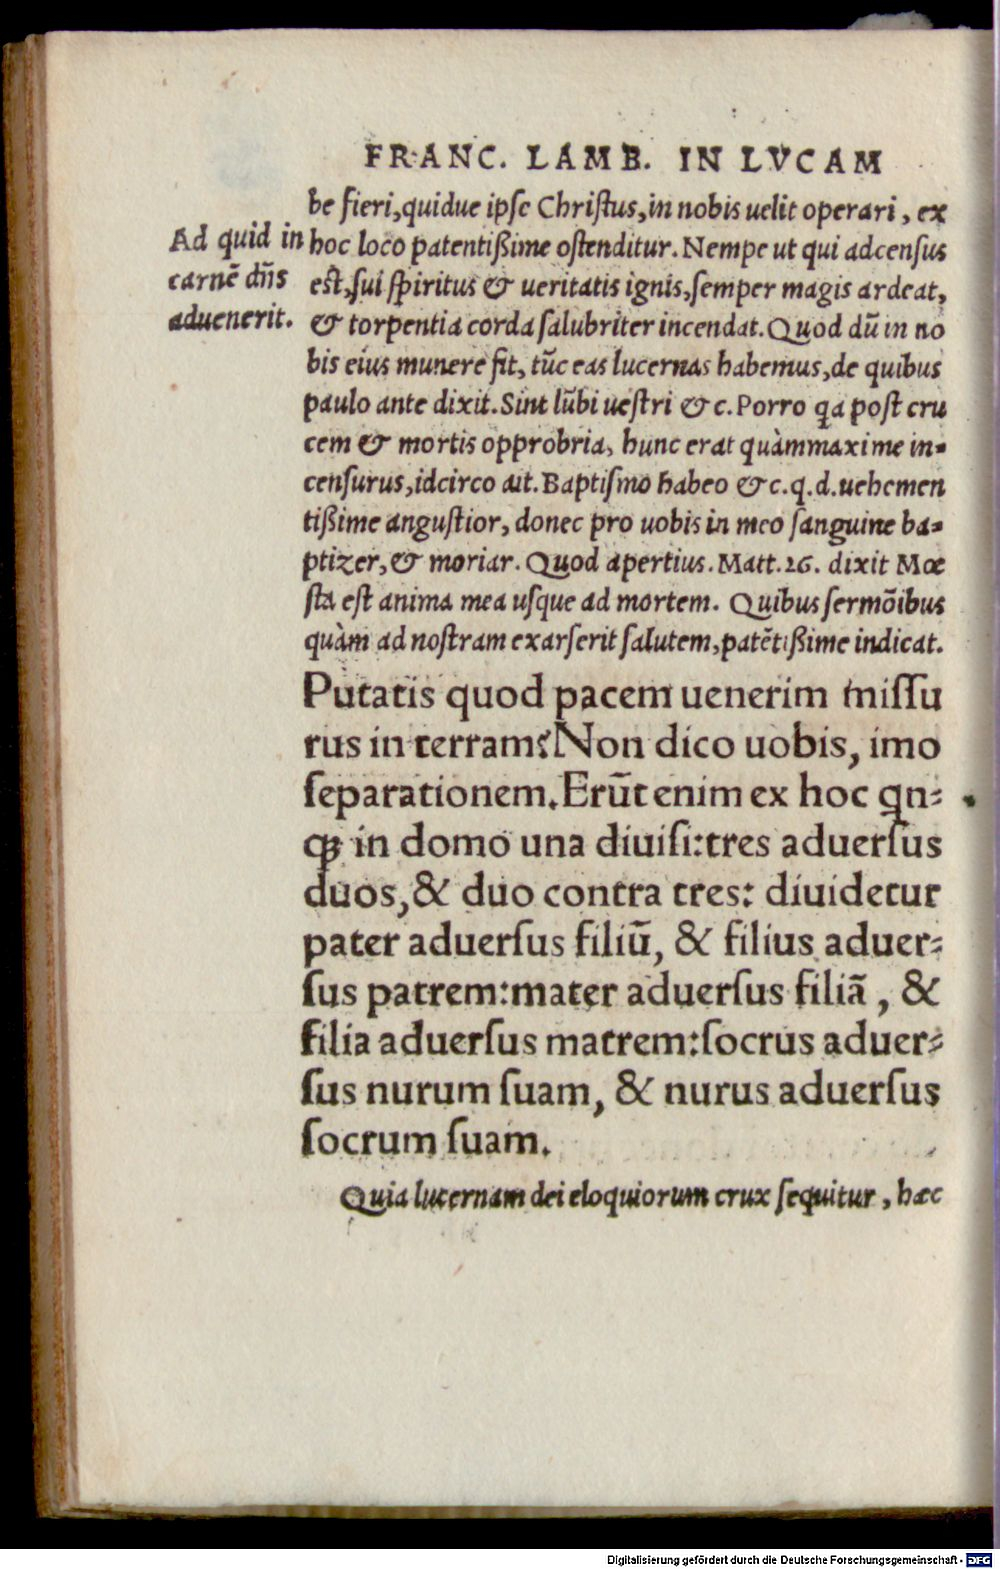 FRANC. LAMB. IN LVCAM
be fieri, quidue ipse Christus, in nobis uelit operari, ex
Ad quid in
carnē dn̄s
aduenerit.
hoc loco patentißime ostenditur. Nempe ut qui adcensus
est, sui spiritus & ueritatis ignis, semper magis ardeat,
& torpentia corda salubriter incendat. Quod dū in no
bis eius munere fit, tūc eas lucernas habemus, de quibus
paulo ante dixit. Sint lūbi uestri & c. Porro qa post cru
cem & mortis opprobria, hunc erat quàmmaxime in=
censurus, idcirco ait. Baptismo habeo & c. q. d. uehemen
tißime angustior, donec pro uobis in meo sanguine ba=
ptizer, & moriar. Quod apertius. Matt. 26. dixit Mœ
sta est anima mea usque ad mortem. Quibus sermōibus
quàm ad nostram exarserit salutem, patētißime indicat.
Putatis quod pacem uenerim missu
rus in terram? Non dico uobis, imo
separationem. Erūt enim ex hoc qn=
qꝫ in domo una diuisi: tres aduersus
duos, & duo contra tres: diuidetur
pater aduersus filiū, & filius aduer=
sus patrem: mater aduersus filiā, &
filia aduersus matrem: socrus aduer=
sus nurum suam, & nurus aduersus
socrum suam.
Quia lucernam dei eloquiorum crux sequitur, hæc
Digitalisierung gefördert durch die Deutsche Forschungsgemeinschaft - DFG